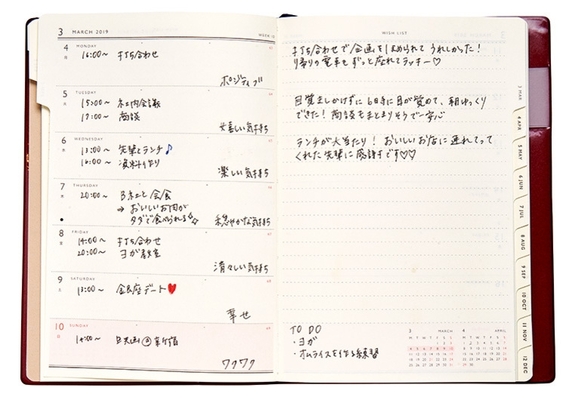 3 MARCH 2019
WEEK 10
4 MONDAY
16:00〜 打ち合わせ
ポジティブ
5 TUESDAY
15:00〜 社内会議
17:00〜 商談
嬉しい気持ち
6 WEDNESDAY
12:00〜 先輩とランチ♪
16:00〜
楽しい気持ち
7 THURSDAY
20:00〜 会食
→ おいしいお肉が
タダで食べられる
穏やかな気持ち
8 FRIDAY
14:00〜 打ち合わせ
20:00〜 ヨガ教室
清々しい気持ち
9 SATURDAY
13:00〜 銀座デート♥
幸せ
10 SUNDAY
14:00〜 映画@新宿
ワクワク
WISH LIST
打ち合わせで企画をほめられてうれしかった!
帰りの電車もずっと座れてラッキー♡
目覚ましかけずに6時に目が覚めて、朝ゆっくり
できた! 商談もまとまりそうで一安心
ランチが大当たり! おいしいお店に連れてって
くれた先輩に感謝です♡♡
TO DO
・ヨガ
・オムライスを作る練習
3 MARCH
4 APRIL
3 MAR
4 APR
5 MAY
6 JUN
7 JUL
8 AUG
9 SEP
10 OCT
11 NOV
12 DEC